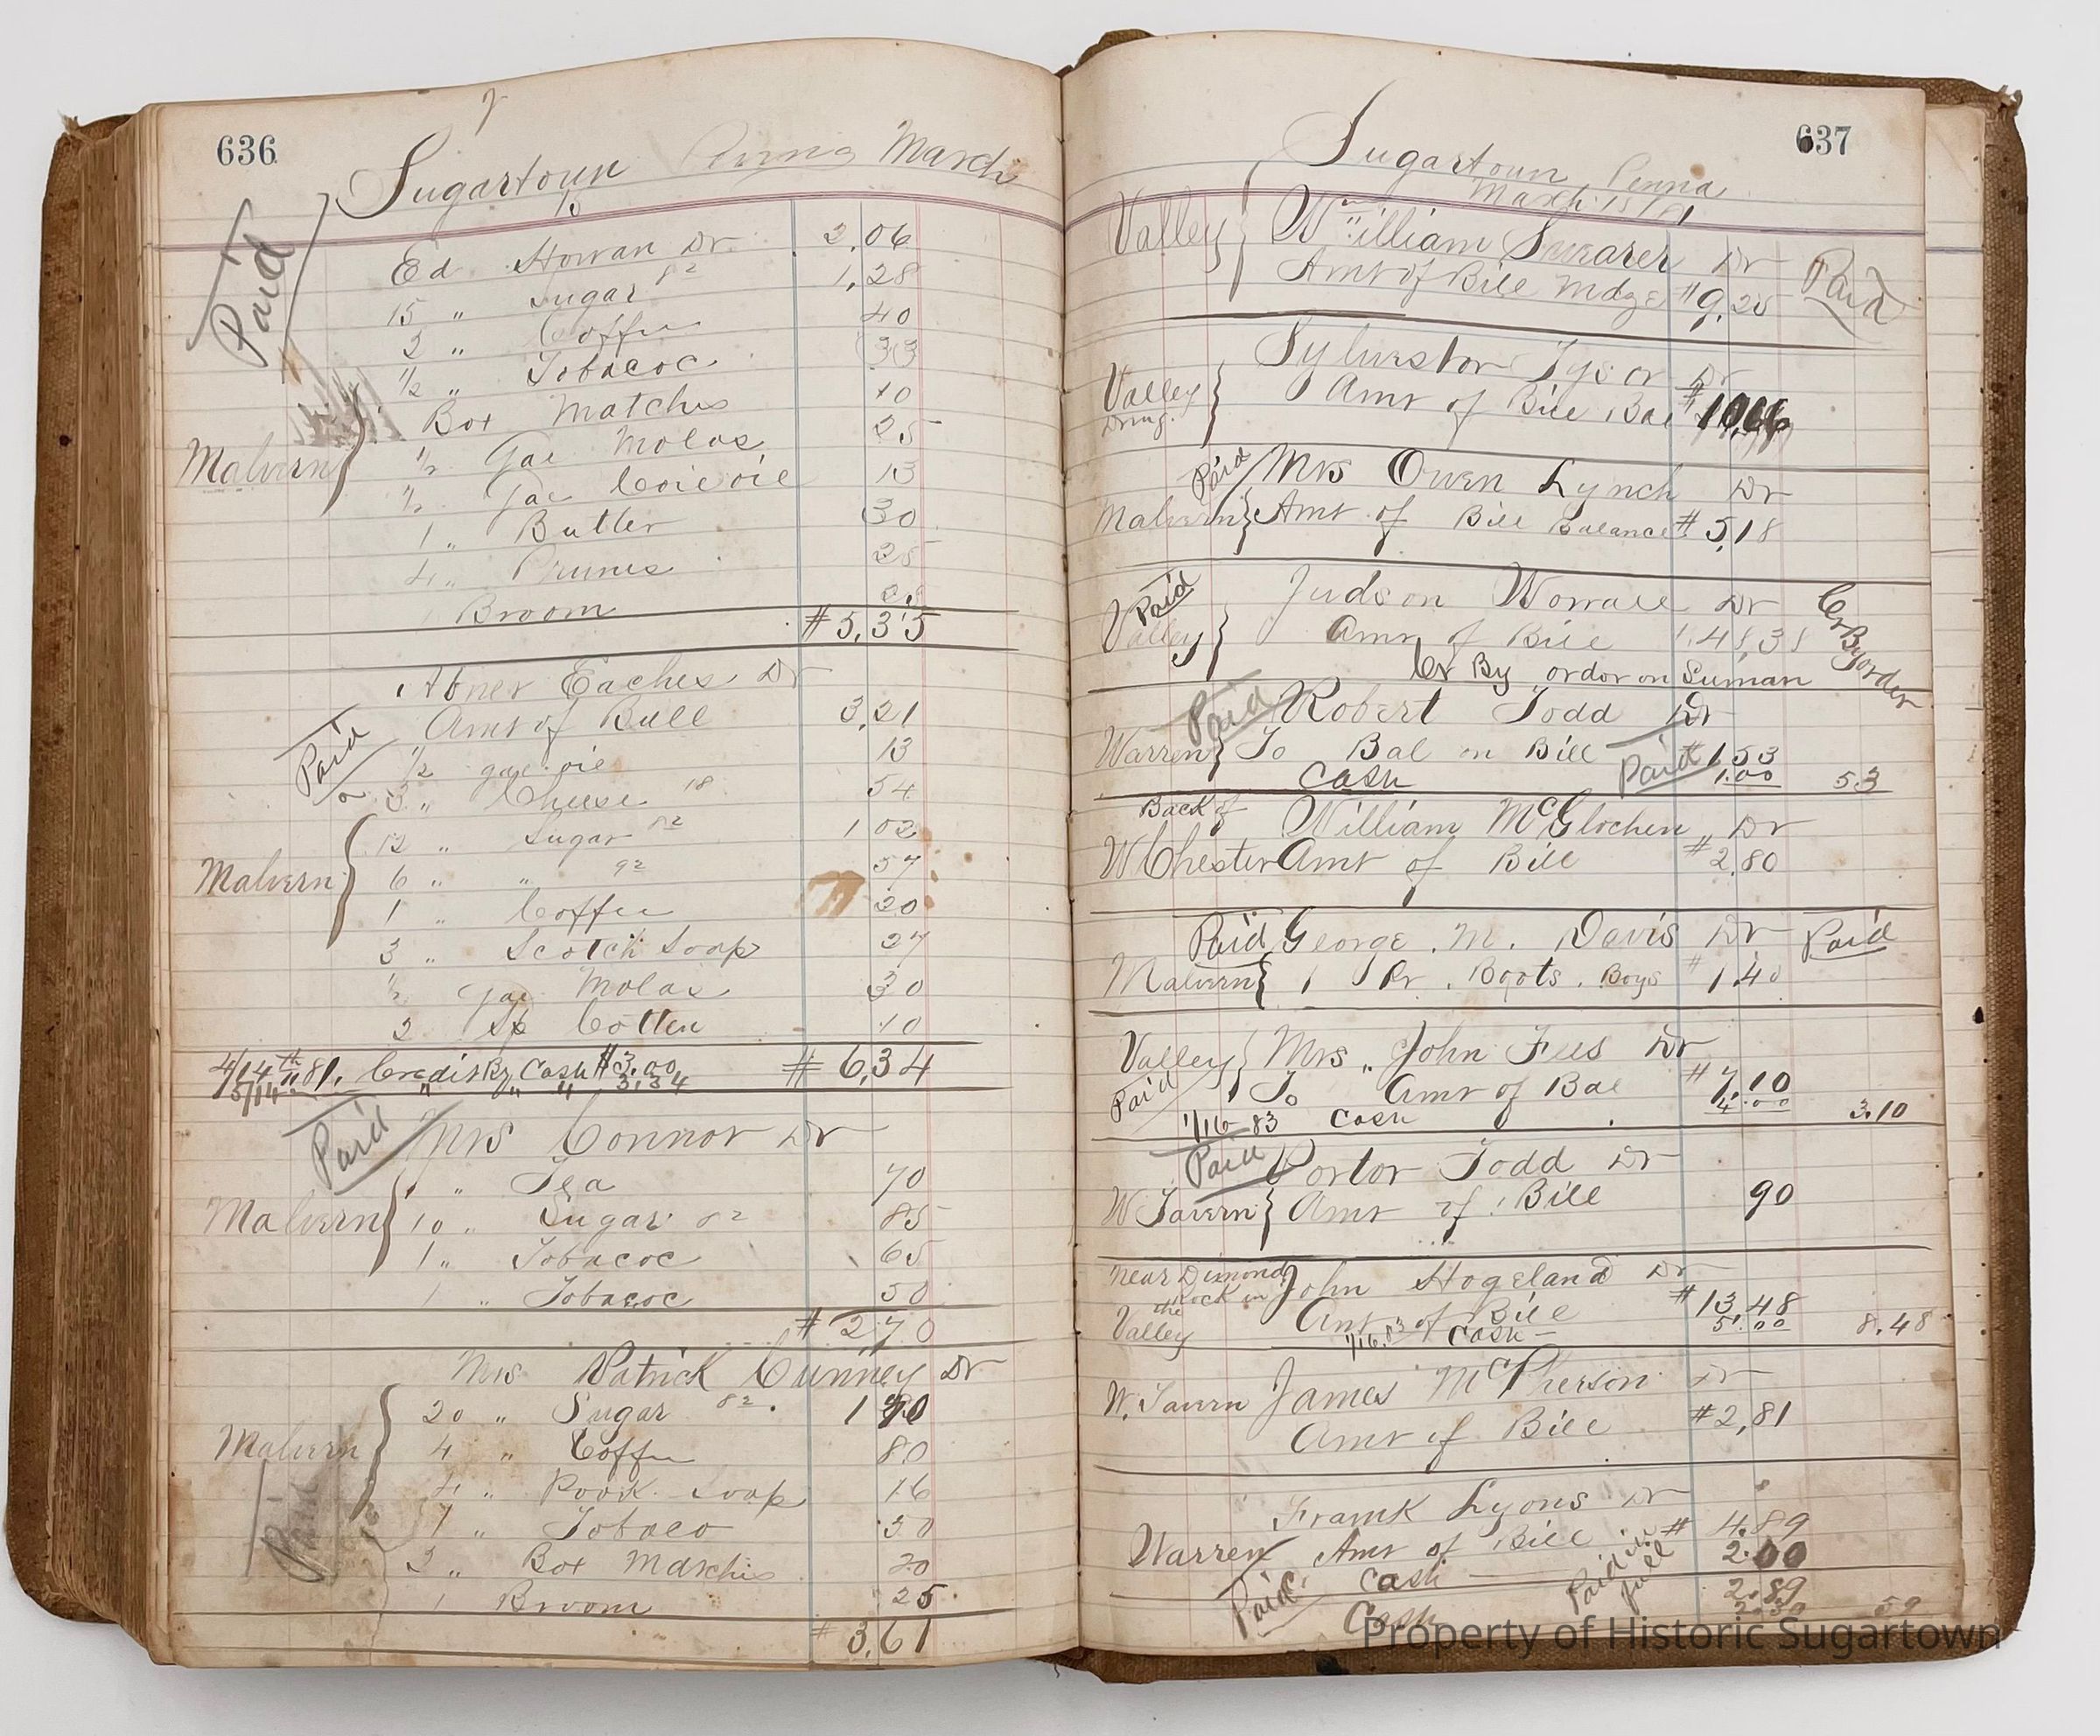 636
Sugartown Penna March
15
Paid
Ed Howan Dr 2,06
15 " Sugar 8½ 1,28
2 " Coffee 40
½ " Tobacoc 33
Box Matches 10
Malvern
½ Gal Molas 25
½ Gal Coil oil 13
1 " Butter 30
4 " Prunes 25
1 Broom 25
# 5,35
Abner Eaches Dr
Amt of Bill 3,21
Paid
½ gal oil 13
3 " Cheese 18 54
12 " Sugar 8½ 1 02
Malvern
6 " " 9½ 57
1 " Coffee 20
3 " Scotch Soap 27
½ Gal Molas 30
2 Sp Cotten 10
4/14th 81. Credit By Cash $3.00 # 6,34
5/14 " " " 3.34
Paid
Mrs Connor Dr
1 " Tea 70
Malvern 10 " Sugar 8½ 85
1 " Tobacoc 65
1 " Tobacoc 50
# 2,70
Mrs Patrick Cunney Dr
20 " Sugar 8½ 1 70
Malvern 4 " Coffee 80
4 " Soap 16
Paid
1 " Tobaco 50
2 " Box Matchis 20
1 Broom 25
# 3,61
637
Sugartoun Penna
March 15/81
Valley William Shearer Dr
Amt of Bill Mdze #9,25 Paid
Sylvester Tyson Dr
Valley Amt of Bill Bal # 10,66
Paid Mrs Owen Lynch Dr
Malvern Amt of Bill Balance # 5,18
Paid
Judson Worrall Dr
Valley Amt of Bill 148,38
Cr By order on Suman
Cr By order
Paid Robert Todd Dr
Warren To Bal on Bill Paid # 1 53
Cash 1.00 53
Back of William McGlochen " Dr
W Chester Amt of Bill # 2,80
Paid George . M . Davis Dr Paid
Malvern 1 Pr . Boots . Boys # 1 40
Valley Mrs " John Fees Dr
Paid To Amt of Bal # 7,10
1/16 83 Cash 4.00 3.10
Paid Portor Todd Dr
W Tavern Amt of Bill 90
Near Dimond Rock in the Valley
John Hogeland Dr
Amt of Bill # 13,48
1/16.83 Cash 5.00 8.48
W. Tavern James McPherson Dr
Amt of Bill # 2,81
Frank Lyons Dr
Warren Amt of Bill # 4.89
Cash 2.00
Paid in full
2.89
Paid
Cash 59
Property of Historic Sugartown